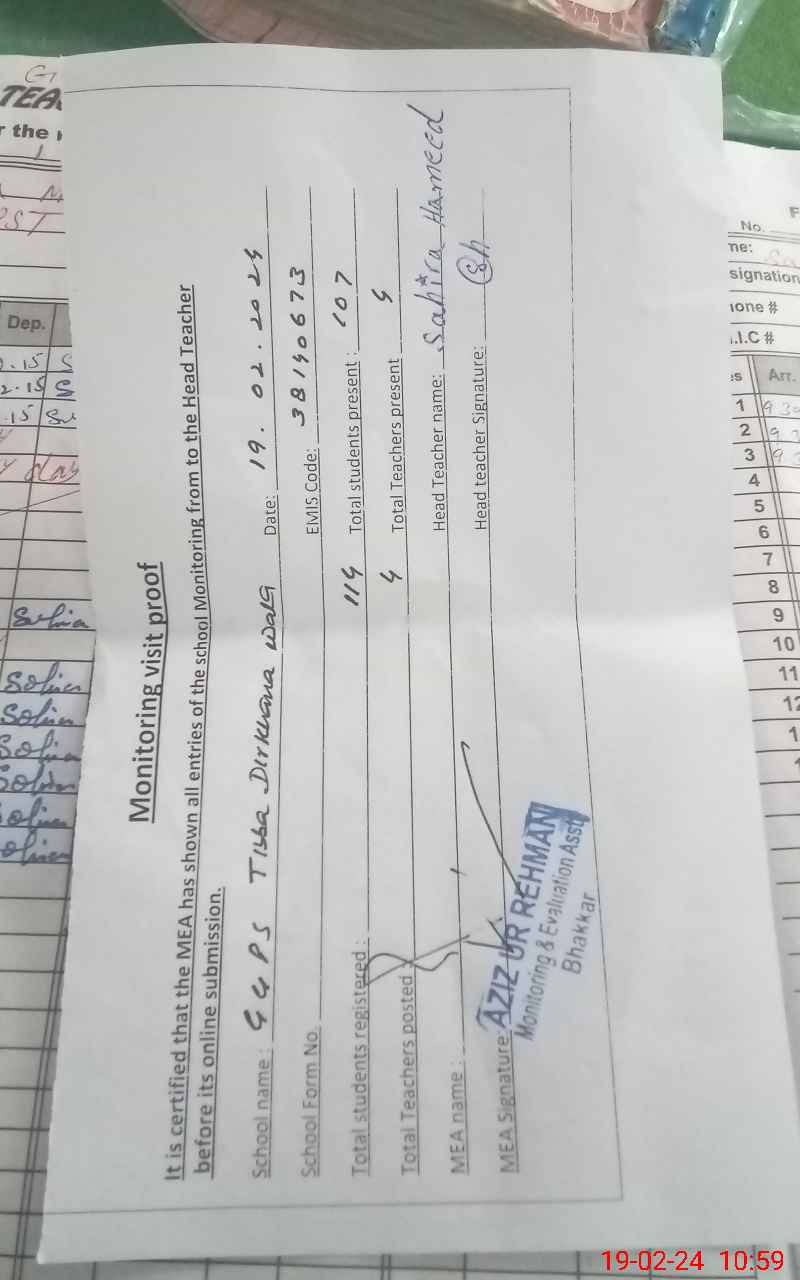 Monitoring visit proof
It is certified that the MEA has shown all entries of the school Monitoring from to the Head Teacher
before its online submission.
School name : GGPS Tibba Dirkhana wala Date: 19.02.2024
School Form No. EMIS Code: 38140673
Total students registered : 114 Total students present : 107
Total Teachers posted : 4 Total Teachers present 4
MEA name : Head Teacher name: Sahira Hameed
MEA Signature: Head teacher Signature: Sh
AZIZ UR REHMAN
Monitoring & Evaluation Asstt
Bhakkar
TEA
r the
Dep.
2.15
2.15
.15
day
No.
me:
signation
one #
.I.C #
es Arr.
1
2
3
4
5
6
7
8
9
10
11
19-02-24 10:59